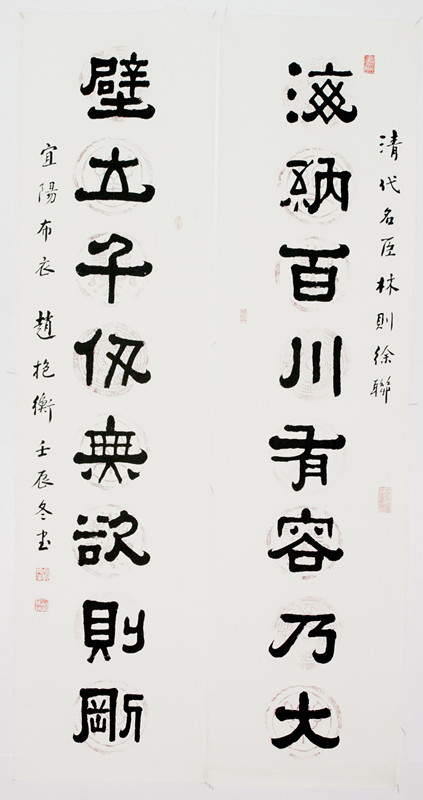 清代名臣林則徐聯
海納百川有容乃大
壁立千仞無欲則剛
宜陽布衣 趙抱衡 壬辰冬書